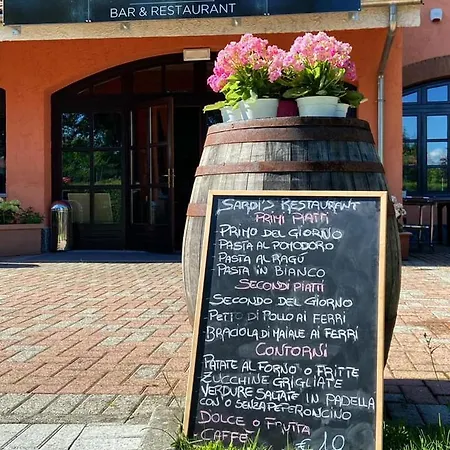 BAR & RESTAURANT
SARDI'S RESTAURANT
PRIMI PIATTI
PRIMO DEL GIORNO
PASTA AL POMODORO
PASTA AL RAGU
PASTA IN BIANCO
SECONDI PIATTI
SECONDO DEL GIORNO
PETTO DI POLLO AI FERRI
BRACIOLA DI MAIALE AI FERRI
CONTORNI
PATATE AL FORNO O FRITTE
ZUCCHINE GRIGLIATE
VERDURE SALTATE IN PADELLA
CON O SENZA PEPERONCINO
DOLCE O FRUTTA
CAFFE'
€ 10